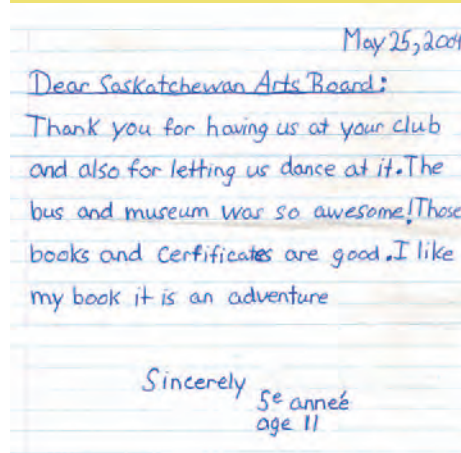 May 25, 200
Dear Saskatchewan Arts Board:
Thank you for having us at your club
and also for letting us dance at it. The
bus and museum was so awesome! Those
books and Cerfificates are good. I like
my book it is an adventure
Sincerely
5e anneé
age 11